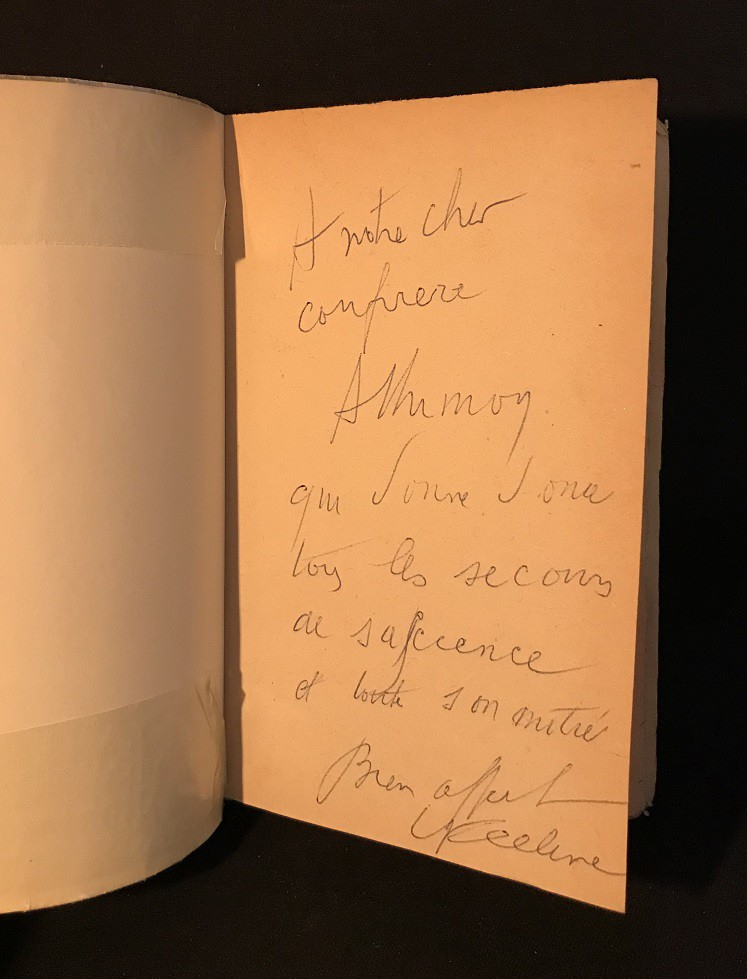 A notre cher
confrere
qui donne
tous les secours
de sa science
et toute son
Bien affect
LFCeline